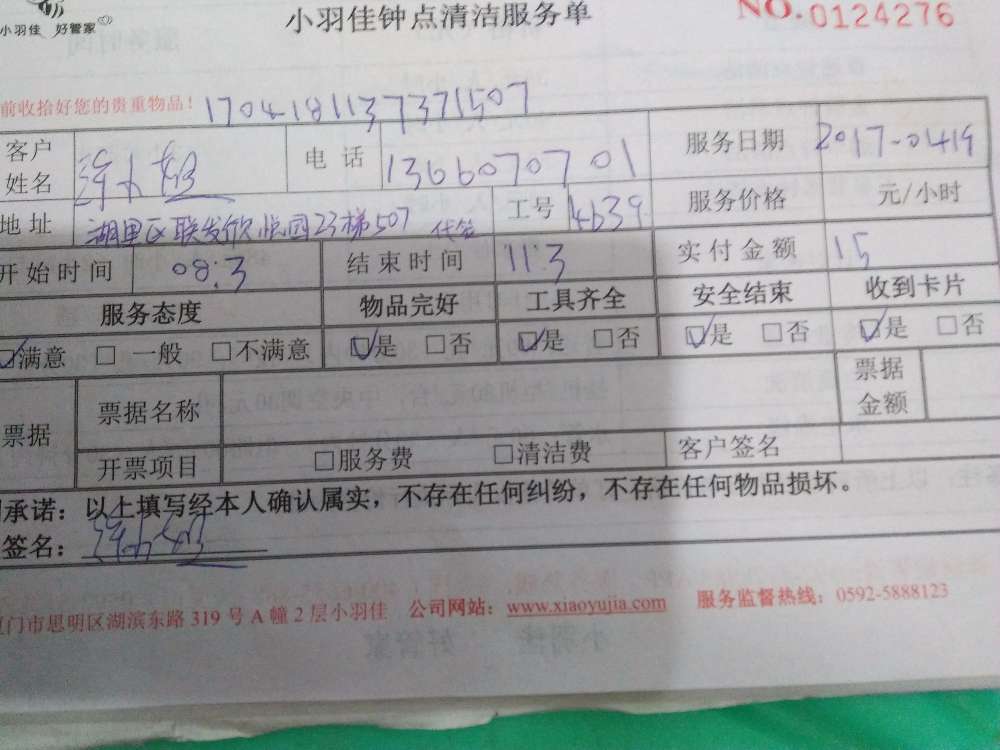 小羽佳 好管家
小羽佳钟点清洁服务单
NO.0124276
前收拾好您的贵重物品! 1704181137371507
客户姓名 电话 1366070701 服务日期 2017-0419
地址 湖里区联发欣悦园23梯507 代签 工号 4639 服务价格 元/小时
开始时间 08:3 结束时间 11:3 实付金额 15
服务态度 物品完好 工具齐全 安全结束 收到卡片
☑满意 □ 一般 □不满意 ☑是 □否 ☑是 □否 ☑是 □否 ☑是 □否
票据 票据名称 票据金额
开票项目 □服务费 □清洁费 客户签名
承诺：以上填写经本人确认属实，不存在任何纠纷，不存在任何物品损坏。
签名：
门市思明区湖滨东路 319 号 A 幢 2 层小羽佳 公司网站：www.xiaoyujia.com 服务监督热线：0592-5888123